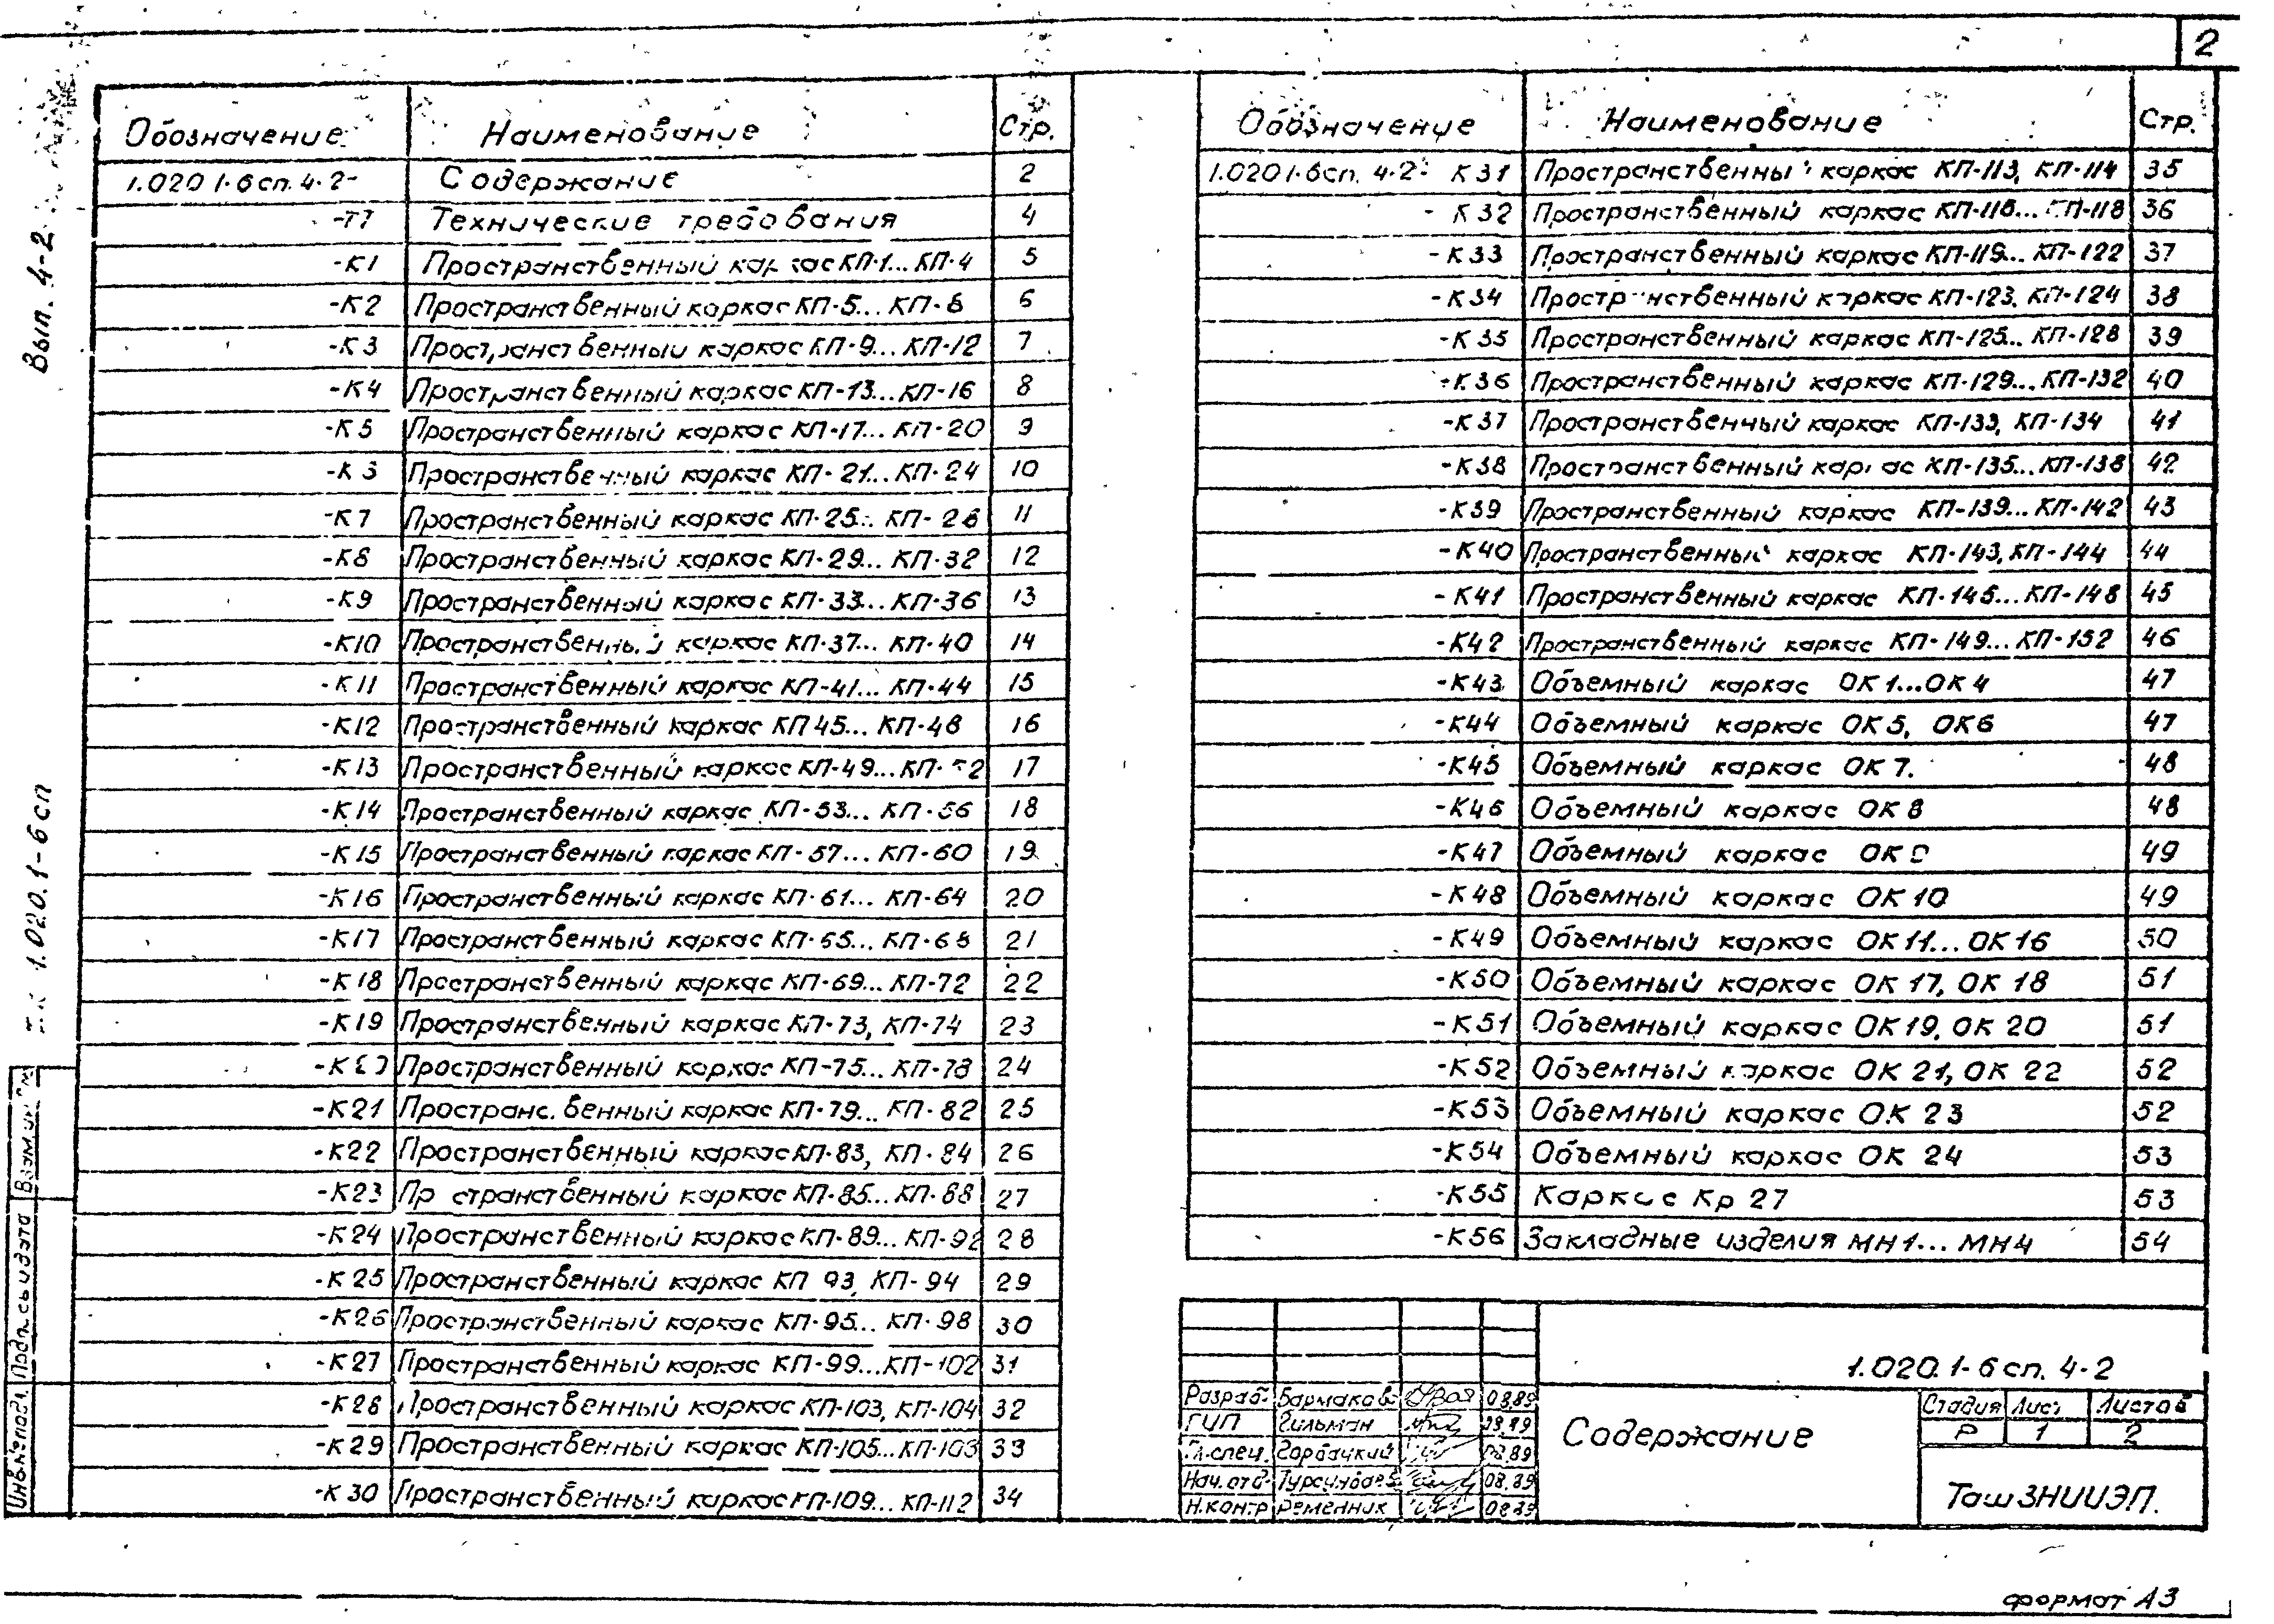 2
Вып. 4-2
1.020.1-6сп
Обозначение Наименование Стр.
1.020 1-6сп. 4-2- Содержание 2
-ТТ Технические требования 4
-К1 Пространственный каркас КП-1... КП-4 5
-К2 Пространственный каркас КП-5... КП-8 6
-К3 Пространственный каркас КП-9... КП-12 7
-К4 Пространственный каркас КП-13... КП-16 8
-К5 Пространственный каркас КП-17... КП-20 9
-К3 Пространственный каркас КП-21... КП-24 10
-К7 Пространственный каркас КП-25... КП-28 11
-К8 Пространственный каркас КП-29... КП-32 12
-К9 Пространственный каркас КП-33... КП-36 13
-К10 Пространственный каркас КП-37... КП-40 14
-К11 Пространственный каркас КП-41... КП-44 15
-К12 Пространственный каркас КП 45... КП-48 16
-К13 Пространственный каркас КП-49... КП-52 17
-К14 Пространственный каркас КП-53... КП-56 18
-К15 Пространственный каркас КП-57... КП-60 19
-К16 Пространственный каркас КП-61... КП-64 20
-К17 Пространственный каркас КП-65... КП-68 21
-К18 Пространственный каркас КП-69... КП-72 22
-К19 Пространственный каркас КП-73, КП-74 23
-К20 Пространственный каркас КП-75... КП-78 24
-К21 Пространственный каркас КП-79... КП-82 25
-К22 Пространственный каркас КП-83, КП-84 26
-К23 Пространственный каркас КП-85... КП-88 27
-К24 Пространственный каркас КП-89... КП-92 28
-К25 Пространственный каркас КП 93, КП-94 29
-К26 Пространственный каркас КП-95... КП-98 30
-К27 Пространственный каркас КП-99...КП-102 31
-К28 Пространственный каркас КП-103, КП-104 32
-К29 Пространственный каркас КП-105... КП-108 33
-К30 Пространственный каркас КП-109... КП-112 34
Обозначение Наименование Стр.
1.020 1-6сп. 4-2- К31 Пространственный каркас КП-113, КП-114 35
- К32 Пространственный каркас КП-115... КП-118 36
-К33 Пространственный каркас КП-119... КП-122 37
-К34 Пространственный каркас КП-123, КП-124 38
-К35 Пространственный каркас КП-125... КП-128 39
-К36 Пространственный каркас КП-129... КП-132 40
-К37 Пространственный каркас КП-133, КП-134 41
-К38 Пространственный каркас КП-135... КП-138 42
-К39 Пространственный каркас КП-139... КП-142 43
-К40 Пространственный каркас КП-143, КП-144 44
-К41 Пространственный каркас КП-145... КП-148 45
-К42 Пространственный каркас КП-149... КП-152 46
-К43 Объемный каркас ОК 1...ОК 4 47
-К44 Объемный каркас ОК 5, ОК6 47
-К45 Объемный каркас ОК 7. 48
-К46 Объемный каркас ОК 8 48
-К47 Объемный каркас ОК 9 49
-К48 Объемный каркас ОК 10 49
-К49 Объемный каркас ОК 11... ОК 16 50
-К50 Объемный каркас ОК 17, ОК 18 51
-К51 Объемный каркас ОК 19, ОК 20 51
-К52 Объемный каркас ОК 21, ОК 22 52
-К53 Объемный каркас ОК 23 52
-К54 Объемный каркас ОК 24 53
-К55 Каркас Кр 27 53
-К56 Закладные изделия МН1... МН4 54
1.020.1-6сп. 4-2
Разраб. Бармакова 08.89
ГИП Гильман 08.89
Гл.спец. Горбацкий 08.89
Нач.отд. Турсунбаев 08.89
Н.контр Ременник 08.89
Содержание
Стадия Лист Листов
Р 1 2
ТашЗНИИЭП.
Инв.№подл. Подпись и дата Взам.ин
формат А3